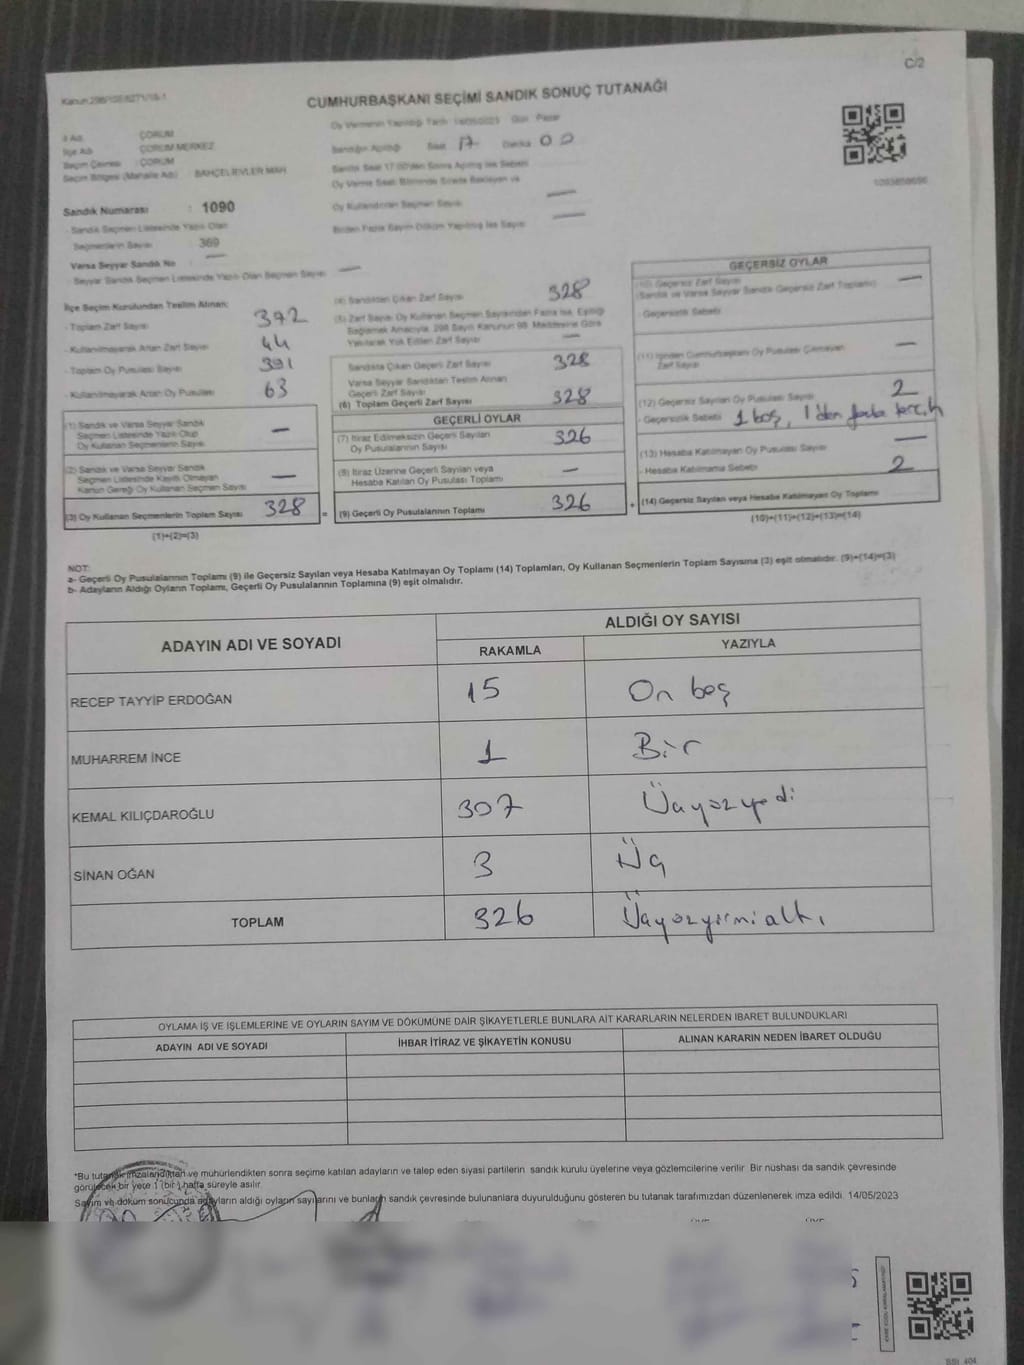 C/2
Kanun:298/105/6271/19-1
CUMHURBAŞKANI SEÇİMİ SANDIK SONUÇ TUTANAĞI
İl Adı : ÇORUM
İlçe Adı : ÇORUM MERKEZ
Seçim Çevresi : ÇORUM
Seçim Bölgesi (Mahalle Adı) : BAHÇELİEVLER MAH
Sandık Numarası : 1090
- Sandık Seçmen Listesinde Yazılı Olan
Seçmenlerin Sayısı 369
Varsa Seyyar Sandık No —
- Seyyar Sandık Seçmen Listesinde Yazılı Olan Seçmen Sayısı —
Oy Vermenin Yapıldığı Tarih 14/05/2023 Gün Pazar
Sandığın Açıldığı Saat 17 Dakika 00
Sandık Saat 17:00'den Sonra Açılmış İse Sebebi
Oy Verme Saati Bitiminde Sırada Bekleyen ve
Oy Kullandırılan Seçmen Sayısı —
Birden Fazla Sayım Döküm Yapılmış İse Sayısı —
İlçe Seçim Kurulundan Teslim Alınan;
- Toplam Zarf Sayısı 372
- Kullanılmayarak Artan Zarf Sayısı 44
- Toplam Oy Pusulası Sayısı 391
- Kullanılmayarak Artan Oy Pusulası 63
(1) Sandık ve Varsa Seyyar Sandık
Seçmen Listesinde Yazılı Olup
Oy Kullanan Seçmenlerin Sayısı —
(2) Sandık ve Varsa Seyyar Sandık
Seçmen Listesinde Kayıtlı Olmayan
Kanun Gereği Oy Kullanan Seçmen Sayısı —
(3) Oy Kullanan Seçmenlerin Toplam Sayısı 328
(1)+(2)=(3)
(4) Sandıktan Çıkan Zarf Sayısı 328
(5) Zarf Sayısı Oy Kullanan Seçmen Sayısından Fazla İse, Eşitliği
Sağlamak Amacıyla, 298 Sayılı Kanunun 98. Maddesine Göre
Yakılarak Yok Edilen Zarf Sayısı —
Sandıkta Çıkan Geçerli Zarf Sayısı 328
Varsa Seyyar Sandıktan Teslim Alınan
Geçerli Zarf Sayısı
(6) Toplam Geçerli Zarf Sayısı 328
GEÇERLİ OYLAR
(7) İtiraz Edilmeksizin Geçerli Sayılan
Oy Pusulalarının Sayısı 326
(8) İtiraz Üzerine Geçerli Sayılan veya
Hesaba Katılan Oy Pusulası Toplamı —
= (9) Geçerli Oy Pusulalarının Toplamı 326
GEÇERSİZ OYLAR
(10) Geçersiz Zarf Sayısı
(Sandık ve Varsa Seyyar Sandık Geçersiz Zarf Toplamı) —
- Geçersizlik Sebebi
(11) İçinden Cumhurbaşkanı Oy Pusulası Çıkmayan
Zarf Sayısı —
(12) Geçersiz Sayılan Oy Pusulası Sayısı 2
- Geçersizlik Sebebi 1 boş, 1'den fazla tercih
(13) Hesaba Katılmayan Oy Pusulası Sayısı —
- Hesaba Katılmama Sebebi
+ (14) Geçersiz Sayılan veya Hesaba Katılmayan Oy Toplamı 2
(10)+(11)+(12)+(13)=(14)
NOT:
a- Geçerli Oy Pusulalarının Toplamı (9) ile Geçersiz Sayılan veya Hesaba Katılmayan Oy Toplamı (14) Toplamları, Oy Kullanan Seçmenlerin Toplam Sayısına (3) eşit olmalıdır. (9)+(14)=(3)
b- Adayların Aldığı Oyların Toplamı, Geçerli Oy Pusulalarının Toplamına (9) eşit olmalıdır.
ADAYIN ADI VE SOYADI
ALDIĞI OY SAYISI
RAKAMLA YAZIYLA
RECEP TAYYİP ERDOĞAN 15 On beş
MUHARREM İNCE 1 Bir
KEMAL KILIÇDAROĞLU 307 Üçyüzyedi
SİNAN OĞAN 3 Üç
TOPLAM 326 Üçyüzyirmialtı
OYLAMA İŞ VE İŞLEMLERİNE VE OYLARIN SAYIM VE DÖKÜMÜNE DAİR ŞİKAYETLERLE BUNLARA AİT KARARLARIN NELERDEN İBARET BULUNDUKLARI
ADAYIN ADI VE SOYADI İHBAR İTİRAZ VE ŞİKAYETİN KONUSU ALINAN KARARIN NEDEN İBARET OLDUĞU
*Bu tutanak imzalandıktan ve mühürlendikten sonra seçime katılan adayların ve talep eden siyasi partilerin sandık kurulu üyelerine veya gözlemcilerine verilir. Bir nüshası da sandık çevresinde
görülecek bir yere 1 (bir) hafta süreyle asılır.
Sayım ve döküm sonucunda adayların aldığı oyların sayılarını ve bunların sandık çevresinde bulunanlara duyurulduğunu gösteren bu tutanak tarafımızdan düzenlenerek imza edildi. 14/05/2023